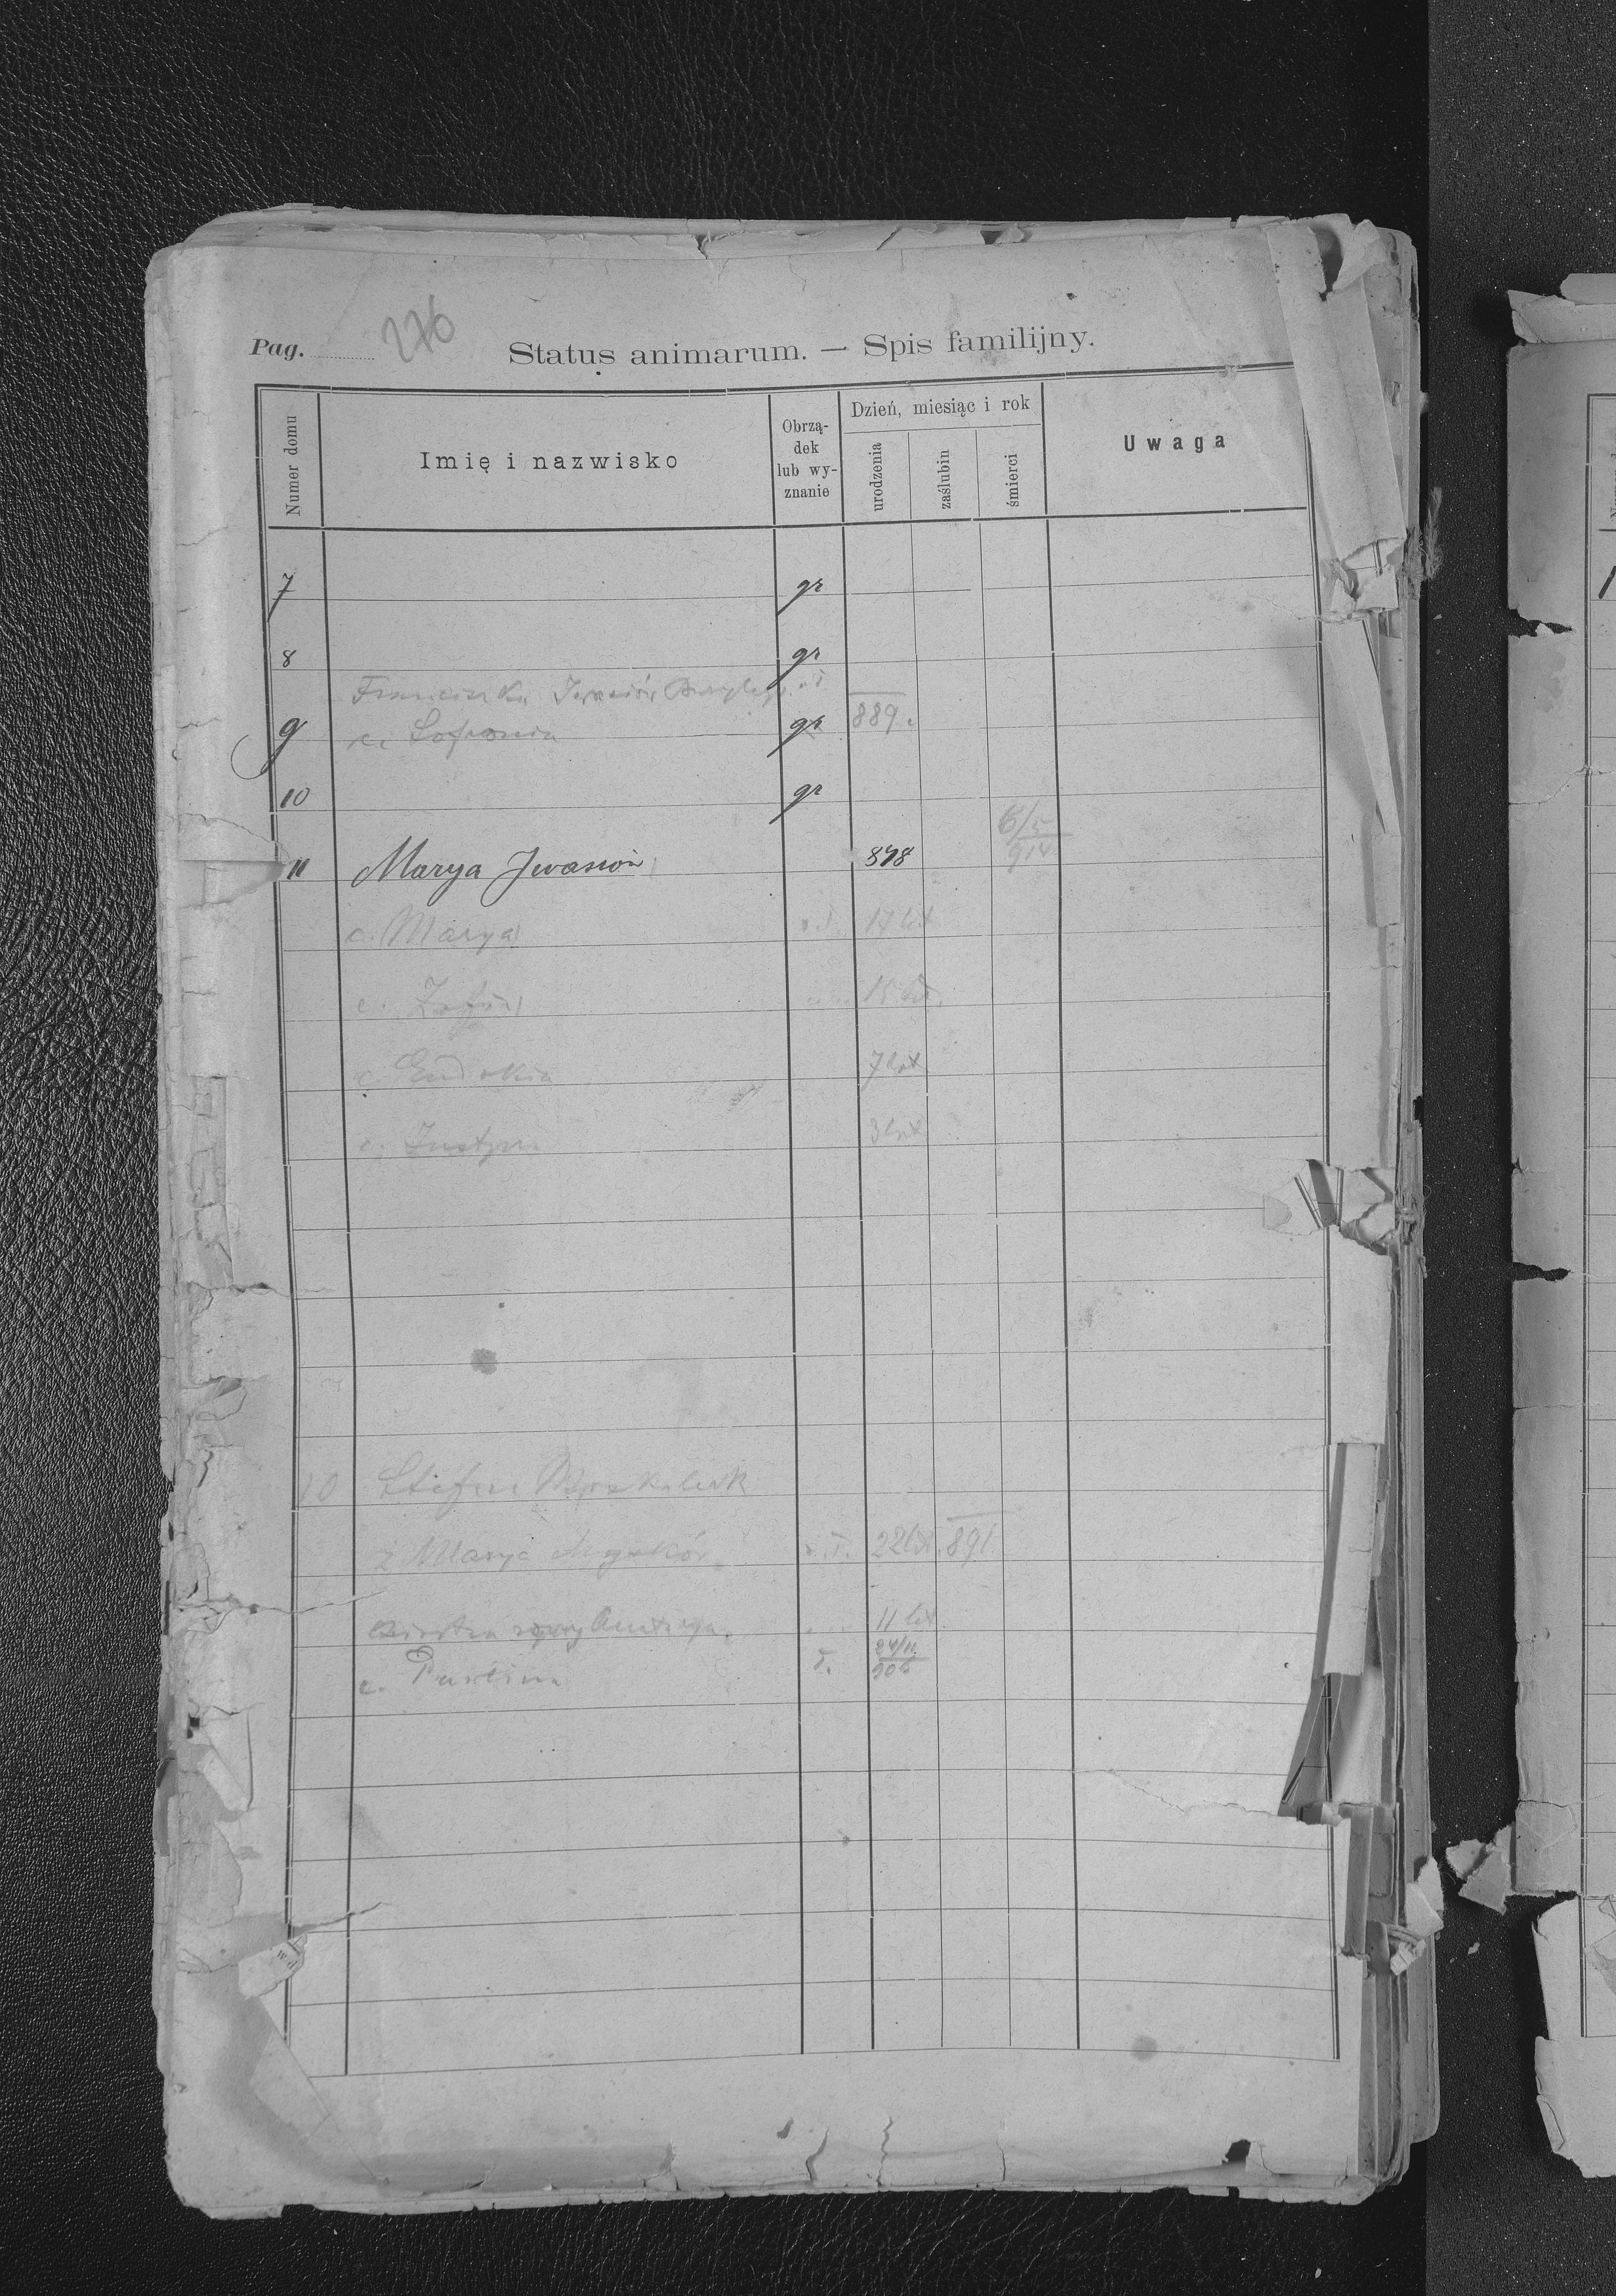 Pag. 276
Status animarum. — Spis familijny.
Numer domu
Imię i nazwisko
Obrzą-
dek
lub wy-
znanie
Dzień, miesiąc i rok
urodzenia
zaślubin
śmierci
Uwaga
7 gr
8 gr
Franciszka
9 c. Sofronia gr 889.
10 gr
11 Marya Jwasiów 878 6/5 914
c. Marya 17 let
c. Zofia 15 let.
c. Eudokia 7 let
c. Justyna 3 let
10 Stefan
ż Marya 22 let. 891
siostra 11 let
c. Paulina 24/11. 906